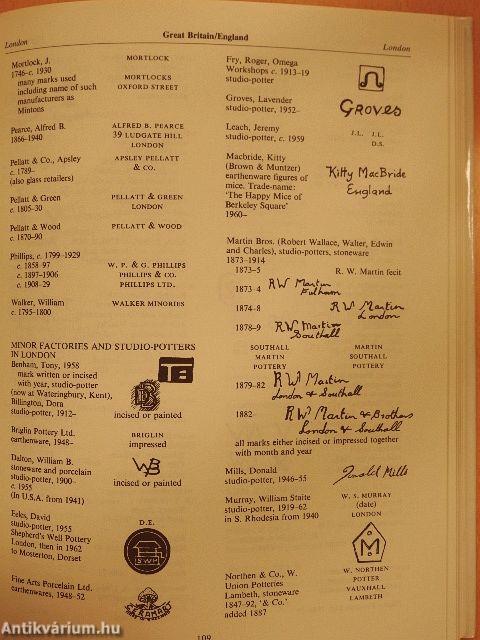 Great Britain/England
London
London
Mortlock, J.
1746–c. 1930
many marks used
including name of such
manufacturers as
Mintons
MORTLOCK
MORTLOCKS
OXFORD STREET
Pearce, Alfred B.
1866–1940
ALFRED B. PEARCE
39 LUDGATE HILL
LONDON
Pellatt & Co., Apsley
c. 1789–
(also glass retailers)
APSLEY PELLATT
& CO.
Pellatt & Green
c. 1805–30
PELLATT & GREEN
LONDON
Pellatt & Wood
c. 1870–90
PELLATT & WOOD
Phillips, c. 1799–1929
c. 1858–97
c. 1897–1906
c. 1908–29
W. P. & G. PHILLIPS
PHILLIPS & CO.
PHILLIPS LTD.
Walker, William
c. 1795–1800
WALKER MINORIES
MINOR FACTORIES AND STUDIO-POTTERS
IN LONDON
Benham, Tony, 1958
mark written or incised
with year, studio-potter
(now at Wateringbury, Kent),
TB
Billington, Dora
studio-potter, 1912–
DB
incised or painted
Briglin Pottery Ltd.
earthenware, 1948–
BRIGLIN
impressed
Dalton, William B.
stoneware and porcelain
studio-potter, 1900–
c. 1955
(In U.S.A. from 1941)
WB
incised or painted
Eeles, David
studio-potter, 1955
Shepherd's Well Pottery
London, then in 1962
to Mosterton, Dorset
D.E.
SWH
Fine Arts Porcelain Ltd.
earthenwares, 1948–52
Fry, Roger, Omega
Workshops c. 1913–19
studio-potter
Groves, Lavender
studio-potter, 1952–
GROVES
Leach, Jeremy
studio-potter, c. 1959
J.L. J.L.
D.S.
Macbride, Kitty
(Brown & Muntzer)
earthenware figures of
mice. Trade-name:
'The Happy Mice of
Berkeley Square'
1960–
Kitty MacBride
England
Martin Bros. (Robert Wallace, Walter, Edwin
and Charles), studio-potters, stoneware
1873–1914
1873–5
R. W. Martin fecit
1873–4
RW Martin
Fulham
1874–8
RW Martin
London
1878–9
RW Martin
Southall
SOUTHALL
MARTIN
POTTERY
MARTIN
SOUTHALL
POTTERY
1879–82
RW Martin
London & Southall
1882–
RW Martin & Brothers
London & Southall
all marks either incised or impressed together
with month and year
Mills, Donald
studio-potter, 1946–55
Donald Mills
Murray, William Staite
studio-potter, 1919–62
in S. Rhodesia from 1940
W. S. MURRAY
(date)
LONDON
M
Northen & Co., W.
Union Potteries
Lambeth, stoneware
1847–92, '& Co.'
added 1887
W. NORTHEN
POTTER
VAUXHALL
LAMBETH
109
Antikvárium.hu